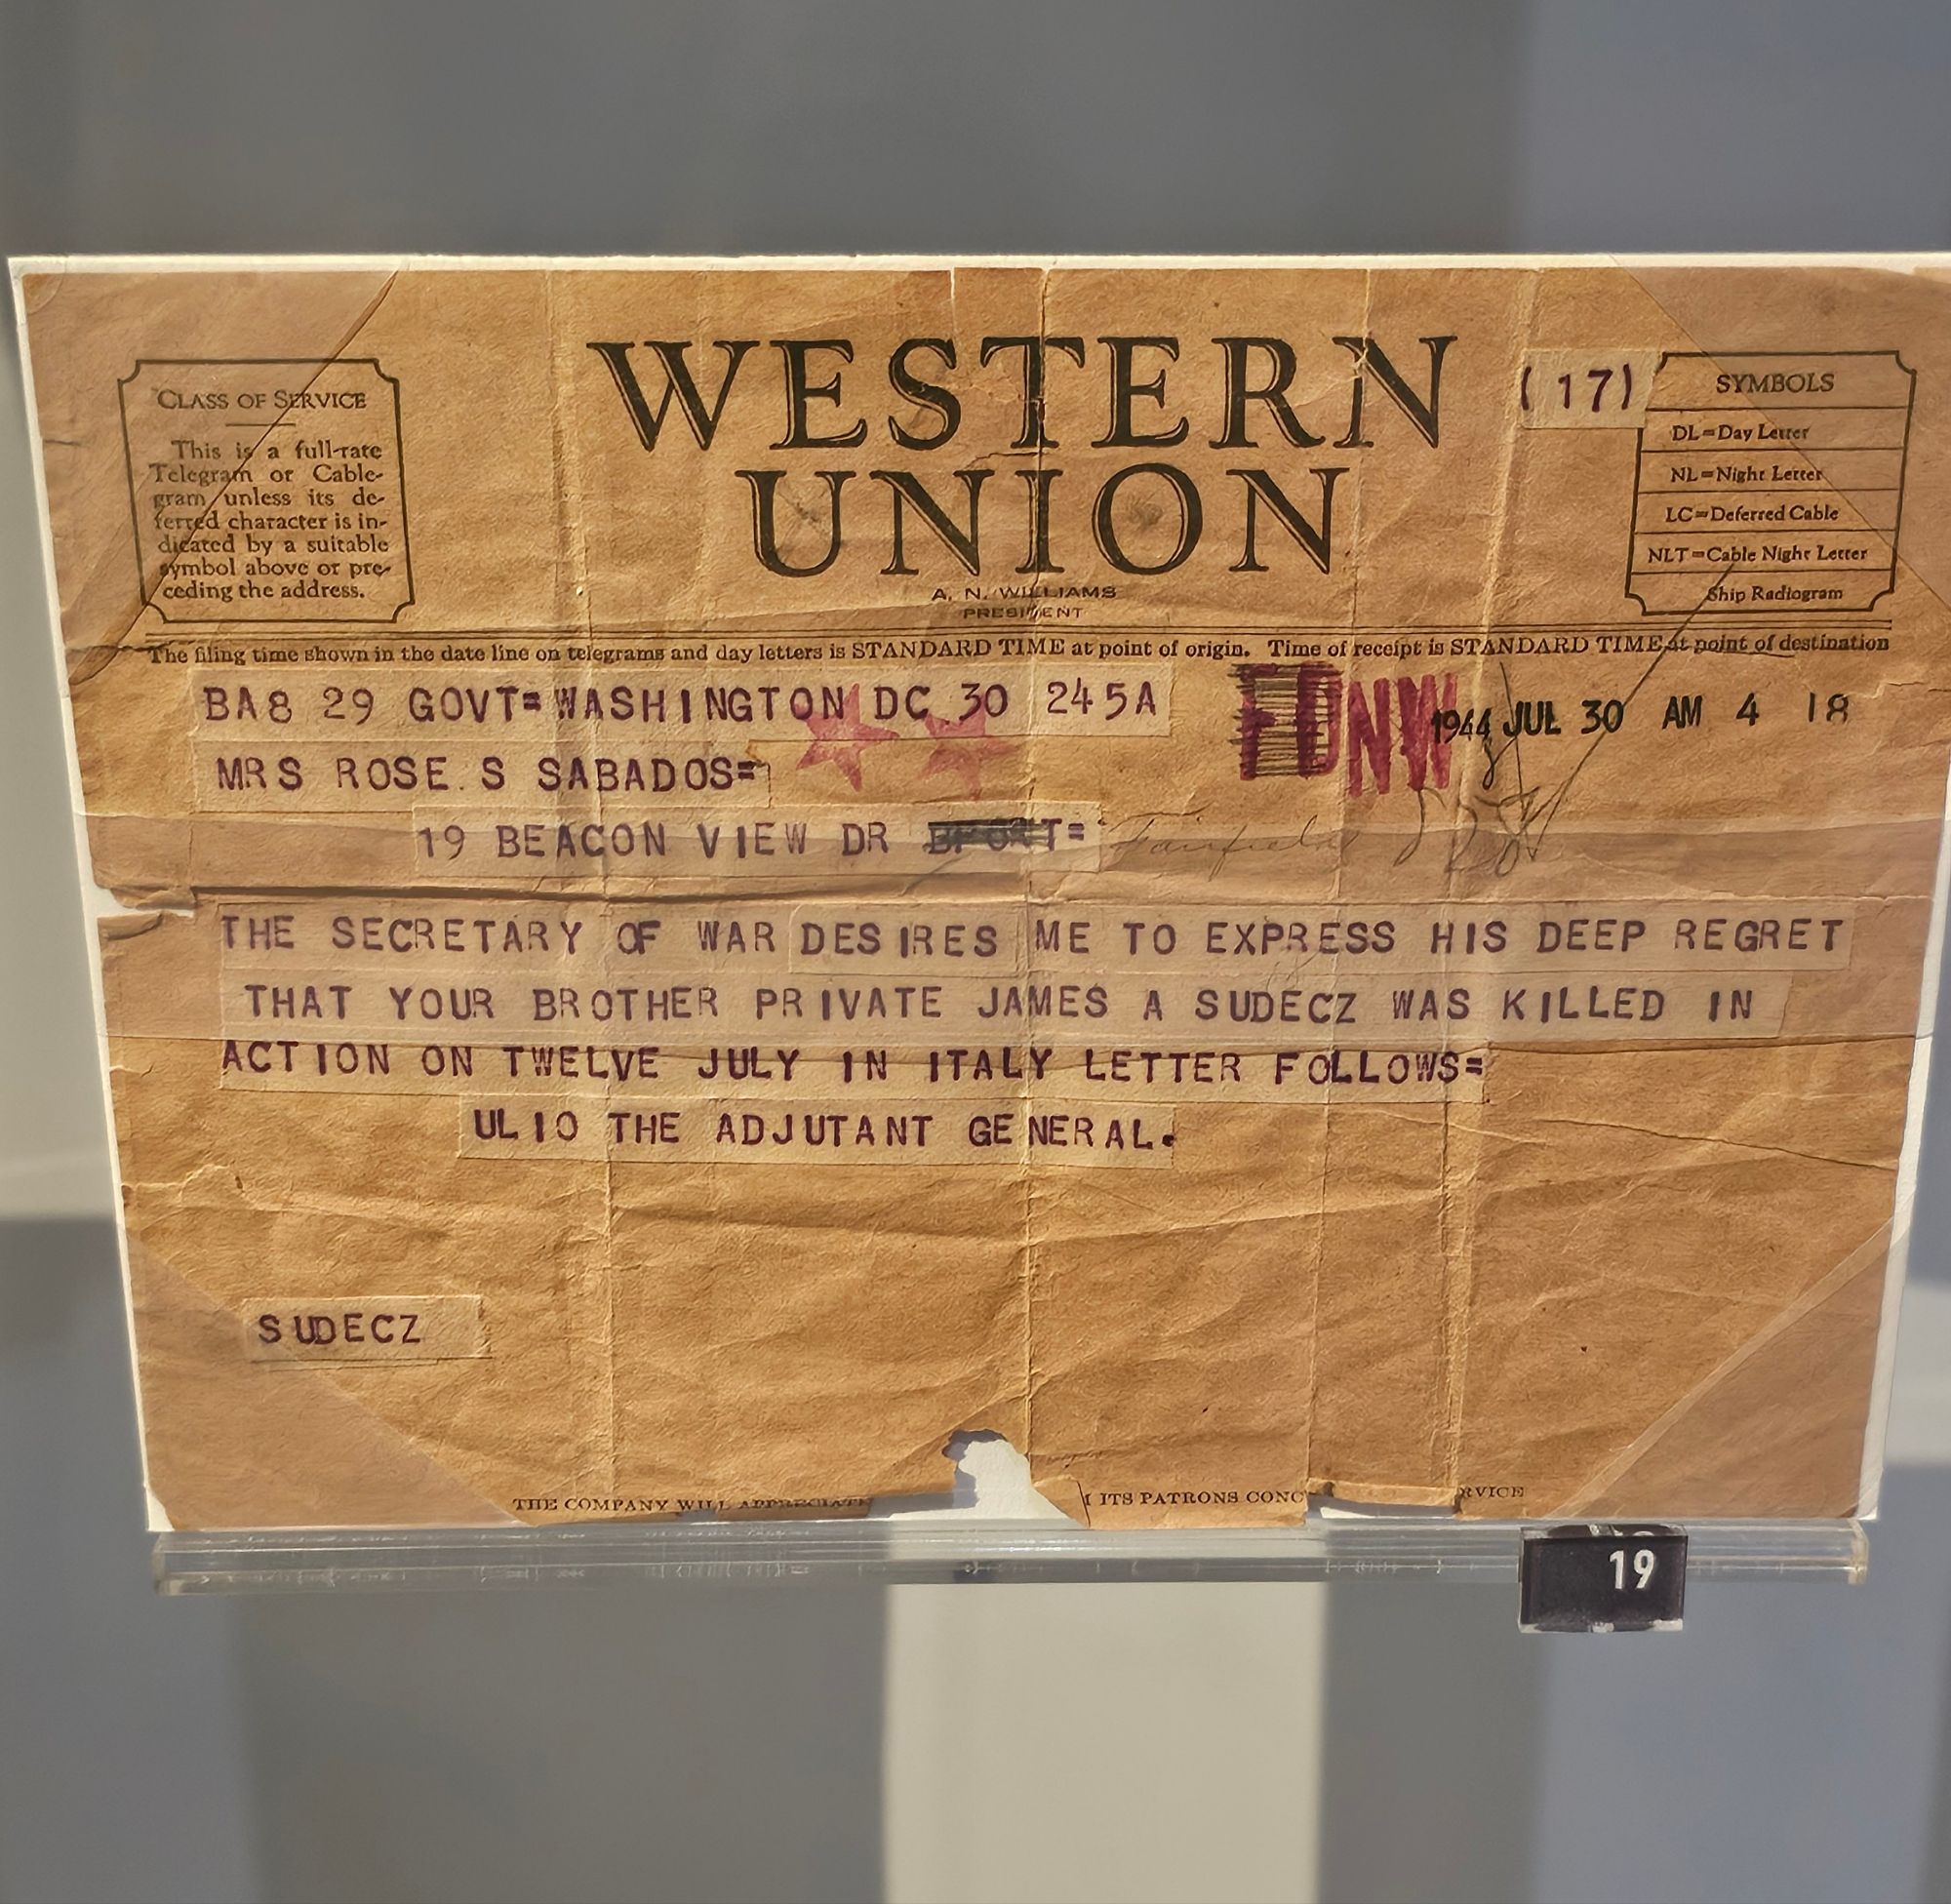 WESTERN
UNION
A. N. WILLIAMS
PRESIDENT
(17)
CLASS OF SERVICE
This is a full-rate
Telegram or Cable-
gram unless its de-
ferred character is in-
dicated by a suitable
symbol above or pre-
ceding the address.
SYMBOLS
DL=Day Letter
NL=Night Letter
LC=Deferred Cable
NLT=Cable Night Letter
Ship Radiogram
The filing time shown in the date line on telegrams and day letters is STANDARD TIME at point of origin. Time of receipt is STANDARD TIME at point of destination
BA8 29 GOVT=WASHINGTON DC 30 245A
1944 JUL 30 AM 4 18
MRS ROSE S SABADOS=
19 BEACON VIEW DR BPORT= Fairfield
THE SECRETARY OF WAR DESIRES ME TO EXPRESS HIS DEEP REGRET
THAT YOUR BROTHER PRIVATE JAMES A SUDECZ WAS KILLED IN
ACTION ON TWELVE JULY IN ITALY LETTER FOLLOWS=
ULIO THE ADJUTANT GENERAL.
SUDECZ
THE COMPANY WILL APPRECIATE ITS PATRONS
19